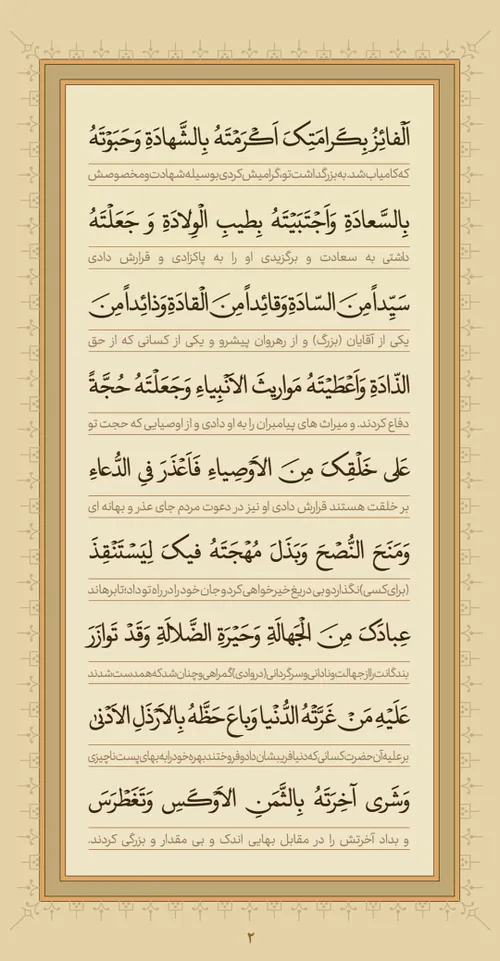 اَلْفائِزُ بِكَرامَتِكَ اَكْرَمْتَهُ بِالشَّهادَةِ وَحَبَوْتَهُ
که کامیاب شد. به بزرگداشت تو، گرامیش کردی بوسیله شهادت و مخصوصش
بِالسَّعادَةِ وَاَجْتَبَيْتَهُ بِطيبِ الْوِلادَةِ وَ جَعَلْتَهُ
داشتی به سعادت و برگزیدی او را به پاکزادی و قرارش دادی
سَيِّداً مِنَ السّادَةِ وَقائِداً مِنَ الْقادَةِ وَذائِداً مِنَ
یکی از آقایان (بزرگ) و از رهروان پیشرو و یکی از کسانی که از حق
الذّادَةِ وَاَعْطَيْتَهُ مَواريثَ الاَنْبِياءِ وَجَعَلْتَهُ حُجَّةً
دفاع کردند. و میراث های پیامبران را به او دادی و از اوصیایی که حجت تو
عَلى خَلْقِكَ مِنَ الاَوْصِياءِ فَاَعْذَرَ فىِ الدُّعاءِ
بر خلقت هستند قرارش دادی او نیز در دعوت مردم جای عذر و بهانه ای
وَمَنَحَ النُّصْحَ وَبَذَلَ مُهْجَتَهُ فيكَ لِيَسْتَنْقِذَ
(برای کسی) نگذارد و بی دریغ خیرخواهی کرد و جان خود را در راه تو داد؛ تا برهاند
عِبادَكَ مِنَ الْجَهالَةِ وَحَيْرَةِ الضَّلالَةِ وَقَدْ تَوازَرَ
بندگانت را از جهالت و نادانی و سرگردانی (در وادی) گمراهی و چنان شد که همدست شدند
عَلَيْهِ مَنْ غَرَّتْهُ الدُّنْيا وَباعَ حَظَّهُ بِالاَرْذَلِ الاَدْنى
بر علیه آن حضرت کسانی که دنیا فریبشان داد و فروختند بهره خود را به بهای پست ناچیزی
وَشَرى آخِرَتَهُ بِالثَّمَنِ الاَوْكَسِ وَتَغَطْرَسَ
و بداد آخرتش را در مقابل بهایی اندک و بی مقدار و بزرگی کردند.
۲